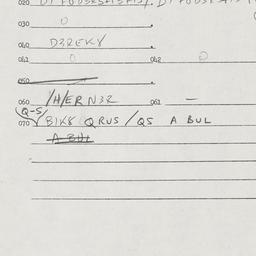 020
030 O
040 DZREKY
041 O 042 O
050
060 /H/ERN32 061 —
Q-S
070 BIX8 QRUS / QS A BUL
A BUL